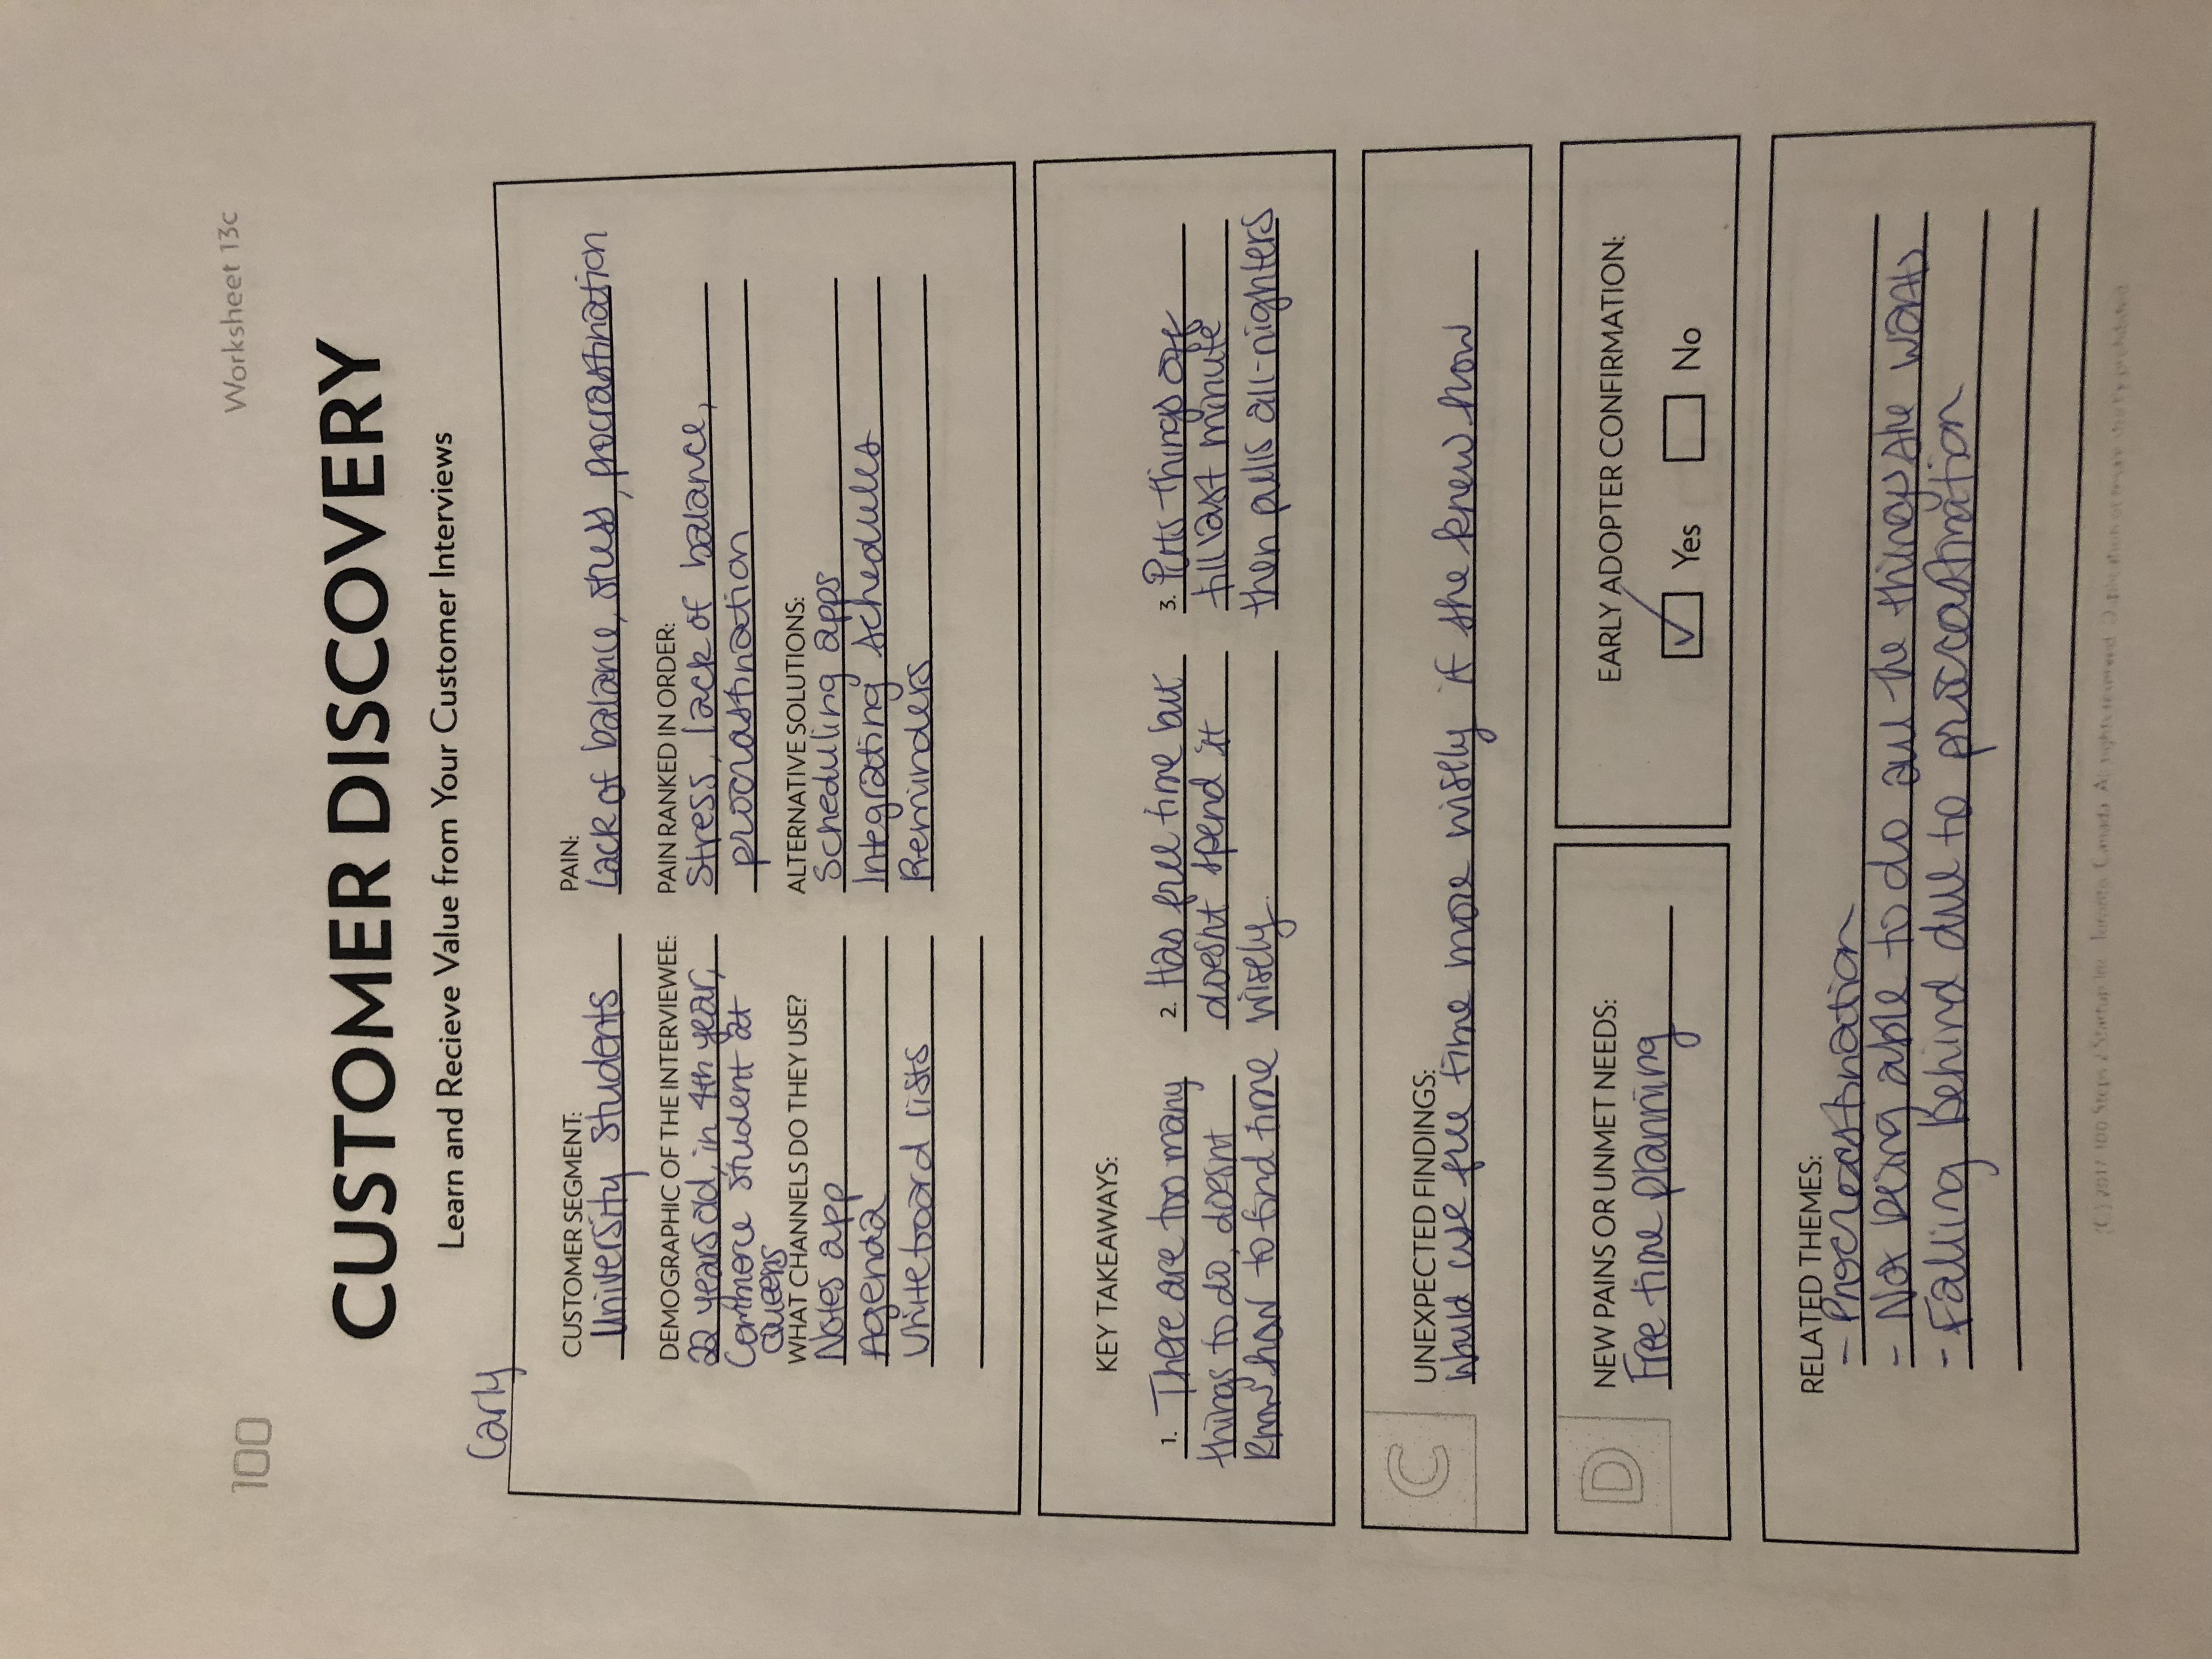 100
Worksheet 13c
CUSTOMER DISCOVERY
Learn and Recieve Value from Your Customer Interviews
Carly
CUSTOMER SEGMENT:
University Students
DEMOGRAPHIC OF THE INTERVIEWEE:
22 years old, in 4th year,
Commerce Student at
Queens
WHAT CHANNELS DO THEY USE?
Notes app
Agenda
Whiteboard lists
PAIN:
Lack of balance, stress, procrastination
PAIN RANKED IN ORDER:
Stress, lack of balance,
procrastination
ALTERNATIVE SOLUTIONS:
Scheduling apps
Integrating schedules
Reminders
KEY TAKEAWAYS:
1. There are too many
things to do, doesnt
know how to find time
2. Has free time but
doesnt spend it
wisely.
3. Puts things off
till last minute
then pulls all-nighters
C
UNEXPECTED FINDINGS:
Would use free time more wisely if she knew how
D
NEW PAINS OR UNMET NEEDS:
Free time planning
EARLY ADOPTER CONFIRMATION:
✓ Yes No
RELATED THEMES:
- Procrastination
- Not being able to do all the things she wants
- Falling behind due to procrastination
(C) 2017 100 Steps 2 Startup Inc. Toronto, Canada. All rights reserved. Duplication or resale strictly prohibited.